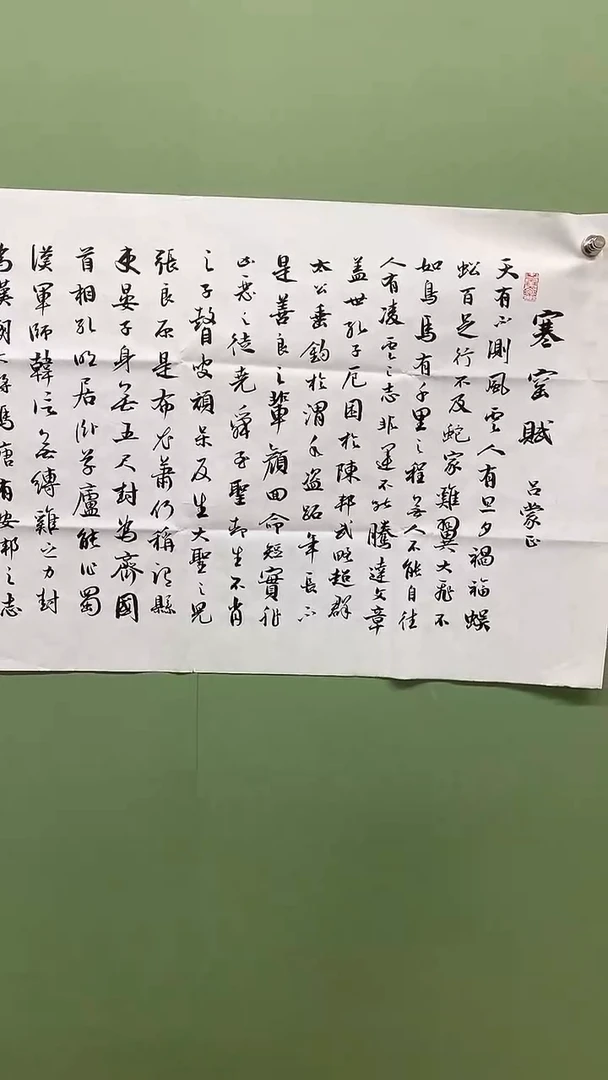 寒窑賦
吕蒙正
天有不測風雲人有旦夕禍福蜈
蚣百足行不及蛇家雞翼大飛不
如鳥馬有千里之程無人不能自往
人有凌雲之志非運不能騰達文章
蓋世孔子厄困於陳邦武略超群
太公垂釣於渭水盜跖年長不
是善良之輩顏回命短實非
凶惡之徒堯舜至聖却生不肖
之子瞽叟頑呆反生大聖之兒
張良原是布衣蕭何稱謂縣
吏晏子身無五尺封為齊國
首相孔明居臥草廬能作蜀
漢軍師韓信無縛雞之力封
為漢大將馮唐有安邦之志